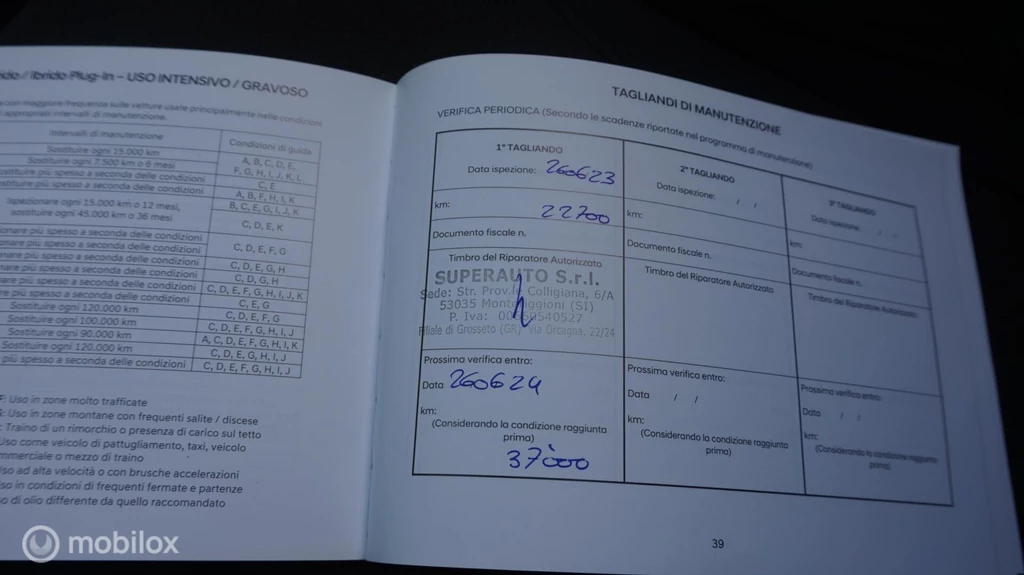 / Ibrido Plug-in – USO INTENSIVO / GRAVOSO
con maggiore frequenza sulle vetture usate principalmente nelle condizioni
appropriati intervalli di manutenzione.
Intervalli di manutenzione
Condizioni di guida
Sostituire ogni 15.000 km
A, B, C, D, E,
F, G, H, I, J, K, L
Sostituire ogni 7.500 km o 6 mesi
più spesso a seconda delle condizioni
C, E
più spesso a seconda delle condizioni
A, B, F, H, I, K
ogni 15.000 km o 12 mesi,
sostituire ogni 45.000 km o 36 mesi
B, C, E, G, I, J, K
C, D, E, K
più spesso a seconda delle condizioni
più spesso a seconda delle condizioni
C, D, E, F, G
più spesso a seconda delle condizioni
C, D, E, G, H
più spesso a seconda delle condizioni
C, D, G, H
più spesso a seconda delle condizioni
C, D, E, F, G, H, I, J, K
più spesso a seconda delle condizioni
C, E, G
Sostituire ogni 120.000 km
C, D, E, F, G
Sostituire ogni 100.000 km
C, D, E, F, G, H, I, J
Sostituire ogni 90.000 km
A, C, D, E, F, G, H, I, K
Sostituire ogni 120.000 km
C, D, E, G, H, I, J
più spesso a seconda delle condizioni
C, D, E, F, G, H, I, J
F: Uso in zone molto trafficate
: Uso in zone montane con frequenti salite / discese
: Traino di un rimorchio o presenza di carico sul tetto
Uso come veicolo di pattugliamento, taxi, veicolo
o mezzo di traino
ad alta velocità o con brusche accelerazioni
in condizioni di frequenti fermate e partenze
di olio differente da quello raccomandato
TAGLIANDI DI MANUTENZIONE
VERIFICA PERIODICA (Secondo le scadenze riportate nel programma di manutenzione)
1° TAGLIANDO
Data ispezione: 260623
km: 22700
Documento fiscale n.
Timbro del Riparatore Autorizzato
SUPERAUTO S.r.l.
Sede: Str. Prov.le Colligiana, 6/A
53035 Monteriggioni (SI)
P. Iva: 540527
Filiale di Grosseto (GR) Via Orcagna, 22/24
Prossima verifica entro:
Data 260624
km:
(Considerando la condizione raggiunta
prima)
37'000
2° TAGLIANDO
Data ispezione: / /
km:
Documento fiscale n.
Timbro del Riparatore Autorizzato
Prossima verifica entro:
Data / /
km:
(Considerando la condizione raggiunta
prima)
3° TAGLIANDO
Data ispezione: / /
km:
Documento fiscale n.
Timbro del Riparatore Autorizzato
Prossima verifica entro:
Data / /
km:
(Considerando la condizione raggiunta
prima)
39
mobilox